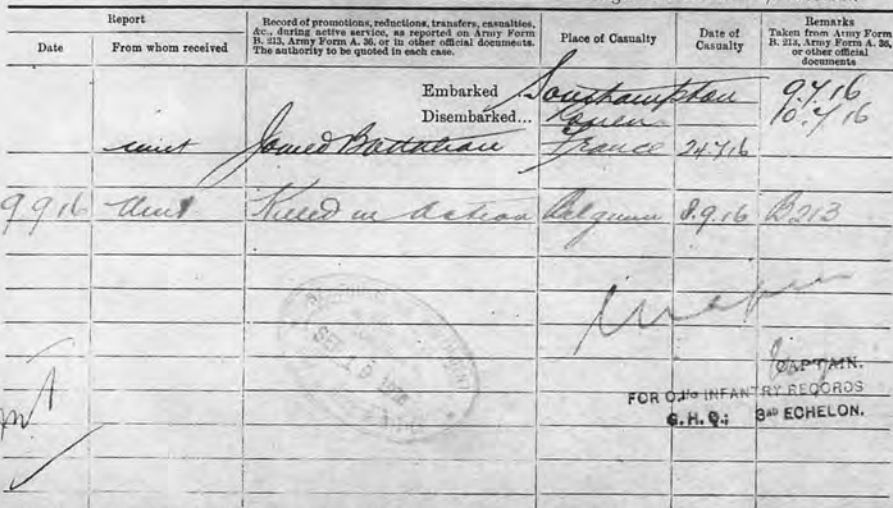 Report
Record of promotions, reductions, transfers, casualties, &c., during active service, as reported on Army Form B. 213, Army Form A. 36, or in other official documents. The authority to be quoted in each case.
Place of Casualty
Date of Casualty
Remarks Taken from Army Form B. 213, Army Form A. 36, or other official documents
Date
From whom received
Embarked Southampton 9.7.16
Disembarked... Rouen 10.7.16
unit Joined Battalion France 24.7.16
9 9 16 Unit Killed in Action Belgium 8.9.16 B213
SEP 1
CAPTAIN.
FOR O. I/c INFANTRY RECORDS
G.H.Q.; 3RD ECHELON.